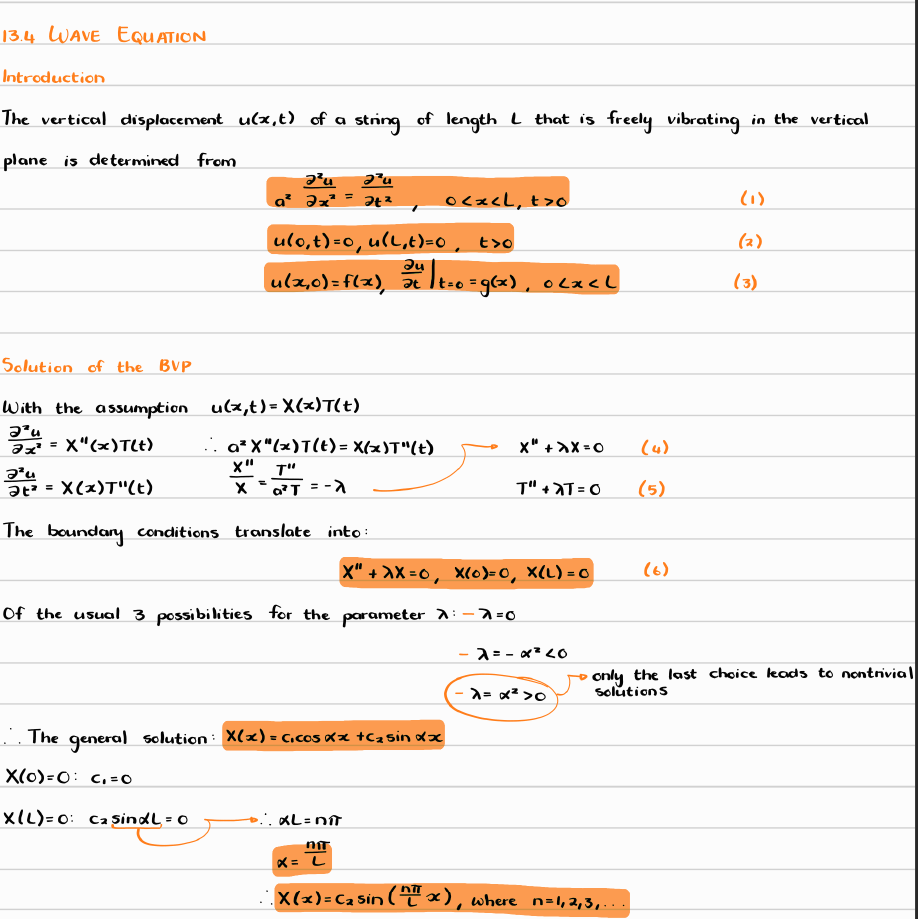 13.4 WAVE EQUATION
Introduction
The vertical displacement u(x,t) of a string of length L that is freely vibrating in the vertical
plane is determined from
a² ∂²u/∂x² = ∂²u/∂t² , 0<x<L, t>0 (1)
u(0,t)=0, u(L,t)=0 , t>0 (2)
u(x,0)=f(x), ∂u/∂t |t=0 = g(x) , 0<x<L (3)
Solution of the BVP
With the assumption u(x,t) = X(x)T(t)
∂²u/∂x² = X"(x)T(t) ∴ a² X"(x)T(t) = X(x)T"(t) X" + λX = 0 (4)
∂²u/∂t² = X(x)T"(t) X"/X = T"/a²T = -λ T" + λT = 0 (5)
The boundary conditions translate into:
X" + λX = 0 , X(0)=0, X(L) = 0 (6)
Of the usual 3 possibilities for the parameter λ: - λ=0
- λ = - α² < 0
- λ = α² > 0 only the last choice leads to nontrivial
solutions
∴ The general solution: X(x) = c₁cos αx + c₂ sin αx
X(0)=0: c₁=0
X(L)=0: c₂ sin αL = 0 ∴ αL = nπ
α = nπ/L
∴ X(x) = c₂ sin (nπ/L x) , where n=1,2,3,...